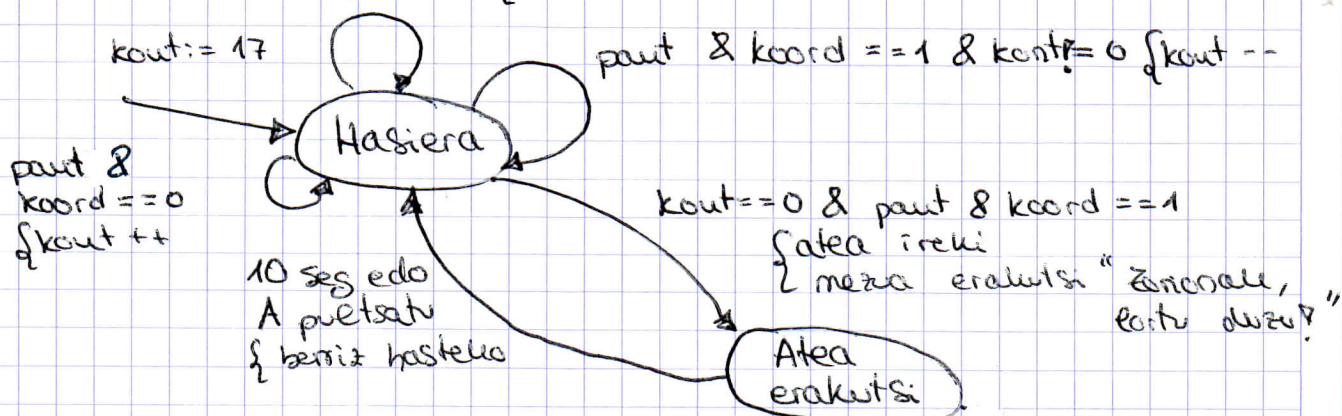 kout:= 17
paut & koord ==1 & kont != 0 {kout --
Hasiera
paut &
koord ==0
{kout ++
kout==0 & paut & koord ==1
{atea ireki
{ mezua erakutsi "Zorionak,
lortu duzu!"
10 seg edo
A pultsatu
{ berriz hasteko
Atea
erakutsi